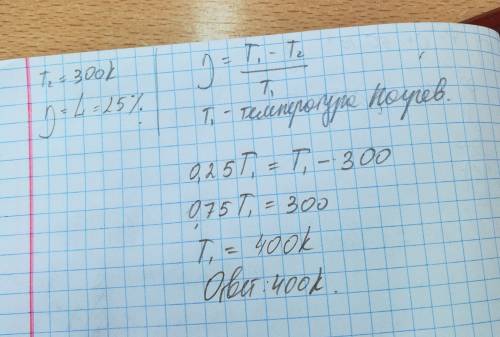 T₂ = 300k
η = L = 25%
η = (T₁ - T₂) / T₁
T₁ - температура Нагрев.
0,25T₁ = T₁ - 300
0,75T₁ = 300
T₁ = 400k
Ответ: 400k.